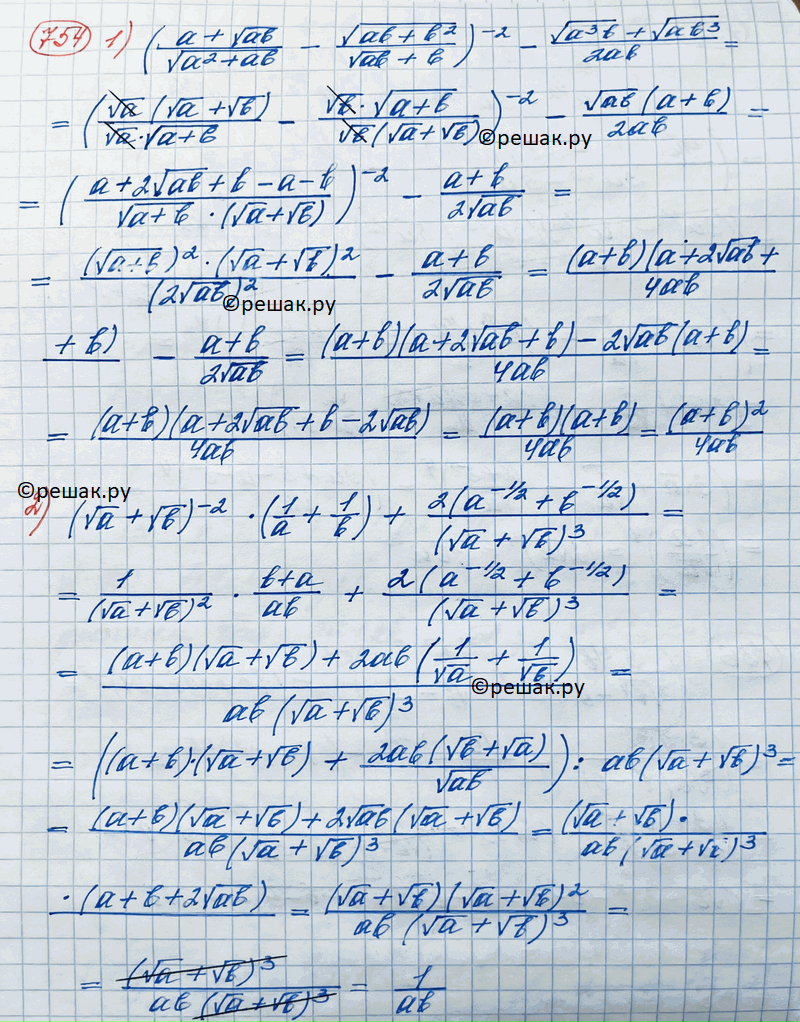 754 1) ( (a + √ab)/√(a² + ab) − √(ab + b²)/(√ab + b) )⁻² − (√(a³b) + √(ab³))/2ab =
= ( √a(√a + √b)/(√a · √(a + b)) − √b · √(a + b)/(√b(√a + √b)) )⁻² − √ab(a + b)/2ab =
©решак.ру
= ( (a + 2√ab + b − a − b)/(√(a + b) · (√a + √b)) )⁻² − (a + b)/2√ab =
= (√(a + b))² · (√a + √b)²/(2√ab)² − (a + b)/2√ab = (a + b)(a + 2√ab +/4ab
©решак.ру
+ b) − (a + b)/2√ab = ((a + b)(a + 2√ab + b) − 2√ab(a + b))/4ab =
= (a + b)(a + 2√ab + b − 2√ab)/4ab = (a + b)(a + b)/4ab = (a + b)²/4ab
©решак.ру
2) (√a + √b)⁻² · (1/a + 1/b) + 2(a^(−1/2) + b^(−1/2))/(√a + √b)³ =
= 1/(√a + √b)² · (b + a)/ab + 2(a^(−1/2) + b^(−1/2))/(√a + √b)³ =
= ((a + b)(√a + √b) + 2ab(1/√a + 1/√b))/ab(√a + √b)³ =
©решак.ру
= ((a + b)·(√a + √b) + 2ab(√b + √a)/√ab) : ab(√a + √b)³ =
= ((a + b)(√a + √b) + 2√ab(√a + √b))/ab(√a + √b)³ = (√a + √b)·/ab(√a + √b)³
·(a + b + 2√ab) = (√a + √b)(√a + √b)²/ab(√a + √b)³ =
= (√a + √b)³/ab(√a + √b)³ = 1/ab